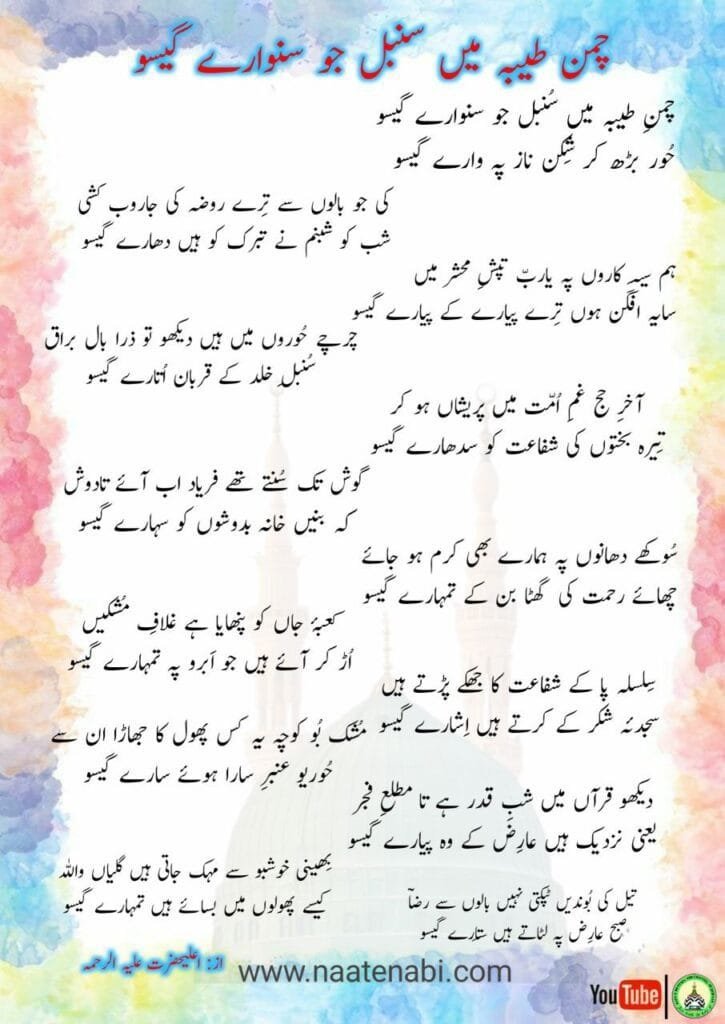 چمن طیبہ میں سنبل جو سنوارے گیسو
چمنِ طیبہ میں سُنبل جو سنوارے گیسو
حُور بڑھ کر شِکنِ ناز پہ وارے گیسو
کی جو بالوں سے تِرے روضہ کی جاروب کشی
شب کو شبنم نے تبرک کو ہیں دھارے گیسو
ہم سیہ کاروں پہ یاربّ تپشِ محشر میں
سایہ افگن ہوں تِرے پیارے کے پیارے گیسو
چرچے حُوروں میں ہیں دیکھو تو ذرا بال براق
سُنبلِ خلد کے قربان اُتارے گیسو
آخرِ حج غمِ اُمّت میں پریشاں ہو کر
تِیرہ بختوں کی شفاعت کو سدھارے گیسو
گوش تک سُنتے تھے فریاد اب آئے تادوش
کہ بنیں خانہ بدوشوں کو سہارے گیسو
سُوکھے دھانوں پہ ہمارے بھی کرم ہو جائے
چھائے رحمت کی گھٹا بن کے تمہارے گیسو
کعبۂ جاں کو پنھایا ہے غلافِ مُشکیں
اُڑ کر آئے ہیں جو اَبرو پہ تمہارے گیسو
سِلسلہ پا کے شفاعت کا جھکے پڑتے ہیں
سجدئہ شکر کے کرتے ہیں اِشارے گیسو
مُشک بُو کوچہ یہ کس پھول کا جھاڑا ان سے
حُوریو عنبرِ سارا ہوئے سارے گیسو
دیکھو قرآں میں شبِ قدر ہے تا مطلعِ فجر
یعنی نزدیک ہیں عارِض کے وہ پیارے گیسو
بِھینی خوشبو سے مہک جاتی ہیں گلیاں واللہ
کیسے پھولوں میں بسائے ہیں تمہارے گیسو
تیل کی بُوندیں ٹپکتی نہیں بالوں سے رضاؔ
صبح عارِض پہ لٹاتے ہیں ستارے گیسو
از: اعلیٰحضرت علیہ الرحمہ
www.naatenabi.com
YouTube